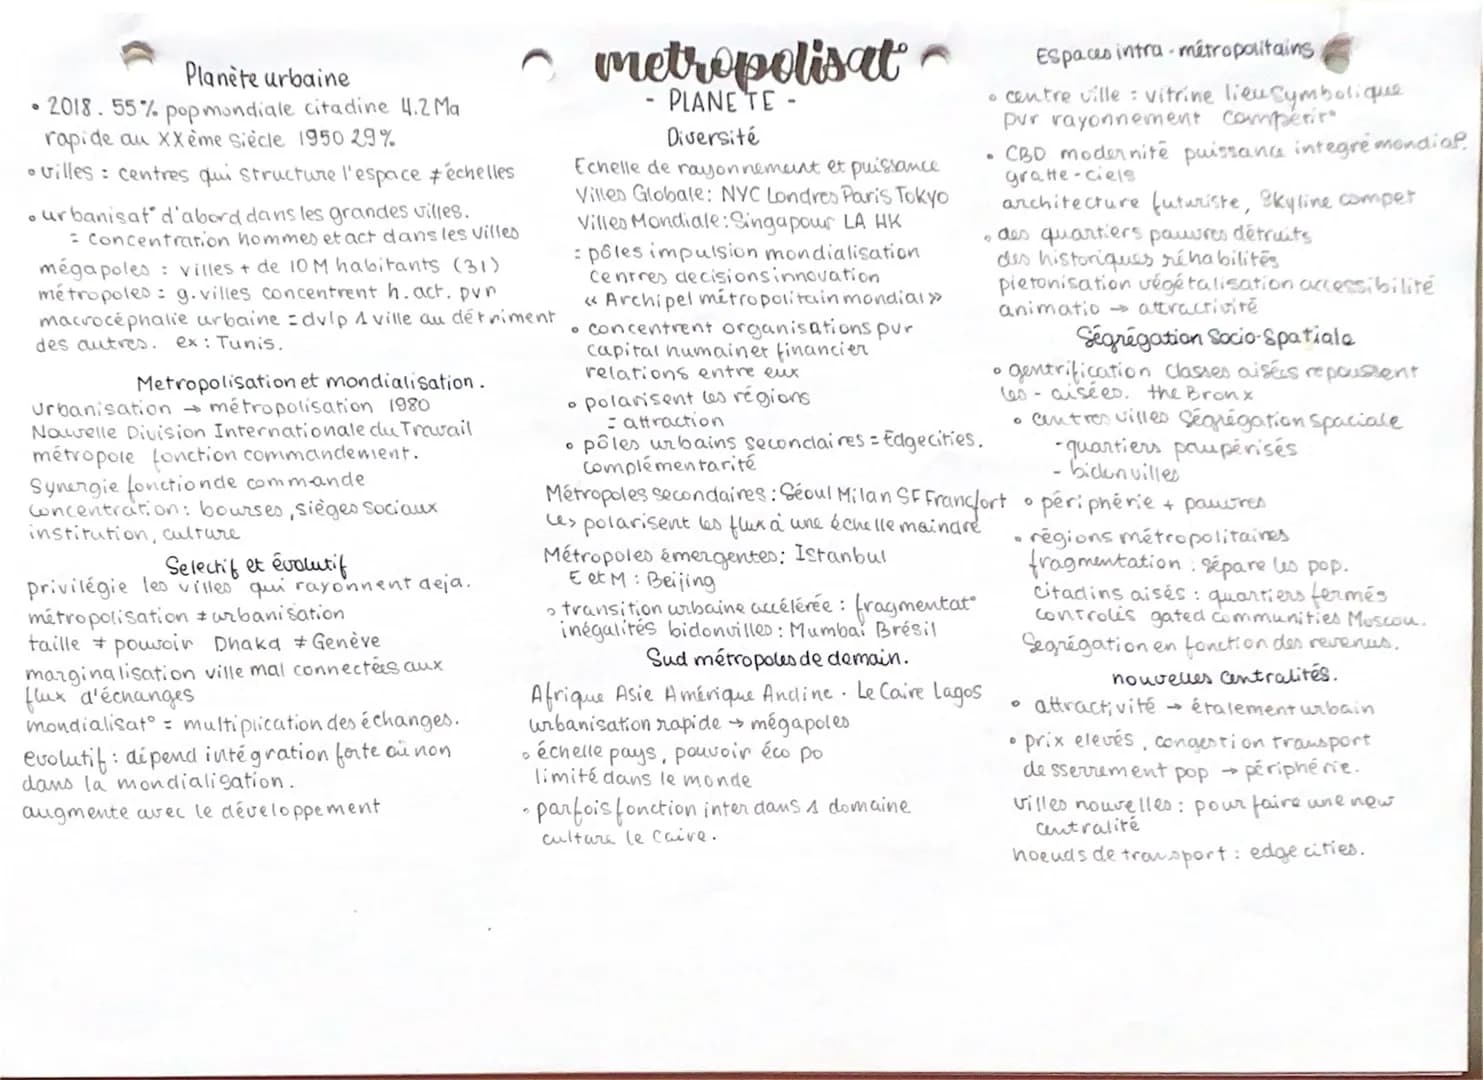 metropolisat°
- PLANETE -
Planète urbaine
• 2018. 55% pop mondiale citadine 4.2 Ma
rapide au XXème siècle 1950 29%
• villes : centres qui structure l'espace ≠ échelles
• urbanisat° d'abord dans les grandes villes.
= concentration hommes et act dans les villes
mégapoles : villes + de 10 M habitants (31)
métropoles : g. villes concentrent h. act. pvr
macrocéphalie urbaine = dvlp 1 ville au détriment
des autres. ex : Tunis.
Metropolisation et mondialisation.
Urbanisation → métropolisation 1980
Nouvelle Division Internationale du Travail
métropole fonction commandement.
Synergie fonction de commande
concentration : bourses, sièges sociaux
institution, culture
Selectif et évolutif
privilégie les villes qui rayonnent deja.
métropolisation ≠ urbanisation
taille ≠ pouvoir Dhaka ≠ Genève
marginalisation ville mal connectées aux
flux d'échanges
mondialisat° = multiplication des échanges.
evolutif : dépend intégration forte où non
dans la mondialisation.
augmente avec le développement
Diversité
Echelle de rayonnement et puissance
Villes Globale : NYC Londres Paris Tokyo
Villes Mondiale : Singapour LA HK
= pôles impulsion mondialisation
centres decisions innovation
« Archipel métropolitain mondial »
• concentrent organisations pvr
capital humain et financier
relations entre eux
• polarisent les régions
= attraction
• pôles urbains secondaires = Edgecities.
complémentarité
Métropoles secondaires : Séoul Milan SF Francfort
polarisent les flux à une échelle maindre
Métropoles émergentes : Istanbul
E et M : Beijing
• transition urbaine accélérée : fragmentat°
inégalités bidonvilles : Mumbai Brésil
Sud métropoles de demain.
Afrique Asie Amérique Andine . Le Caire Lagos
urbanisation rapide → mégapoles
• échelle pays, pouvoir éco po
limité dans le monde
• parfois fonction inter dans 1 domaine
culture le Caire.
Espaces intra-métropolitains
• centre ville : vitrine lieu symbolique
pvr rayonnement
• CBD modernité puissance integré mondial°.
gratte-ciels
architecture futuriste, Skyline compet
• des quartiers pauvres détruits
des historiques réhabilités
pietonisation végétalisation accessibilité
animatio → attractivité
Ségrégation Socio-Spatiale
• gentrification classes aisées repoussent
les - aisées. the Bronx
• centres villes Ségrégation spaciale
- quartiers paupérisés
- bidonvilles
• périphérie + pauvres
• régions métropolitaires
fragmentation : sépare les pop.
citadins aisés : quartiers fermés
controlés gated communities Moscou.
Segrégation en fonction des revenus.
nouvelles centralités.
• attractivité → étalement urbain
• prix elevés, congestion transport
desserrement pop → périphérie.
villes nouvelles : pour faire une new
centralité
noeuds de transport : edge cities.